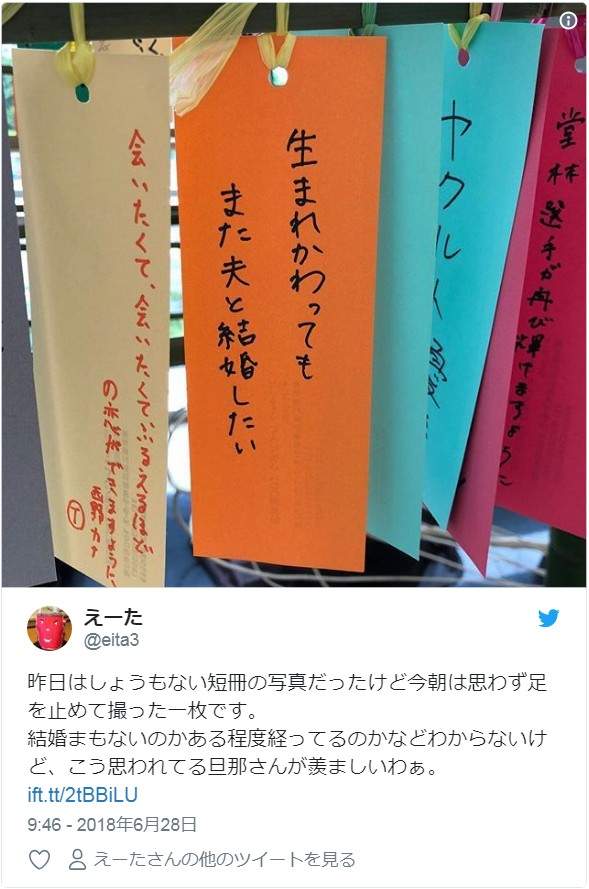 堂林選手が再び輝けますように
ヤクルト
生まれかわっても
また夫と結婚したい
会いたくて、会いたくてふるえるほど
の恋ができますように、
西野カナ
Ⓣ
えーた
@eita3
昨日はしょうもない短冊の写真だったけど今朝は思わず足
を止めて撮った一枚です。
結婚まもないのかある程度経ってるのかなどわからないけ
ど、こう思われてる旦那さんが羨ましいわぁ。
ift.tt/2tBBiLU
9:46 - 2018年6月28日
えーたさんの他のツイートを見る